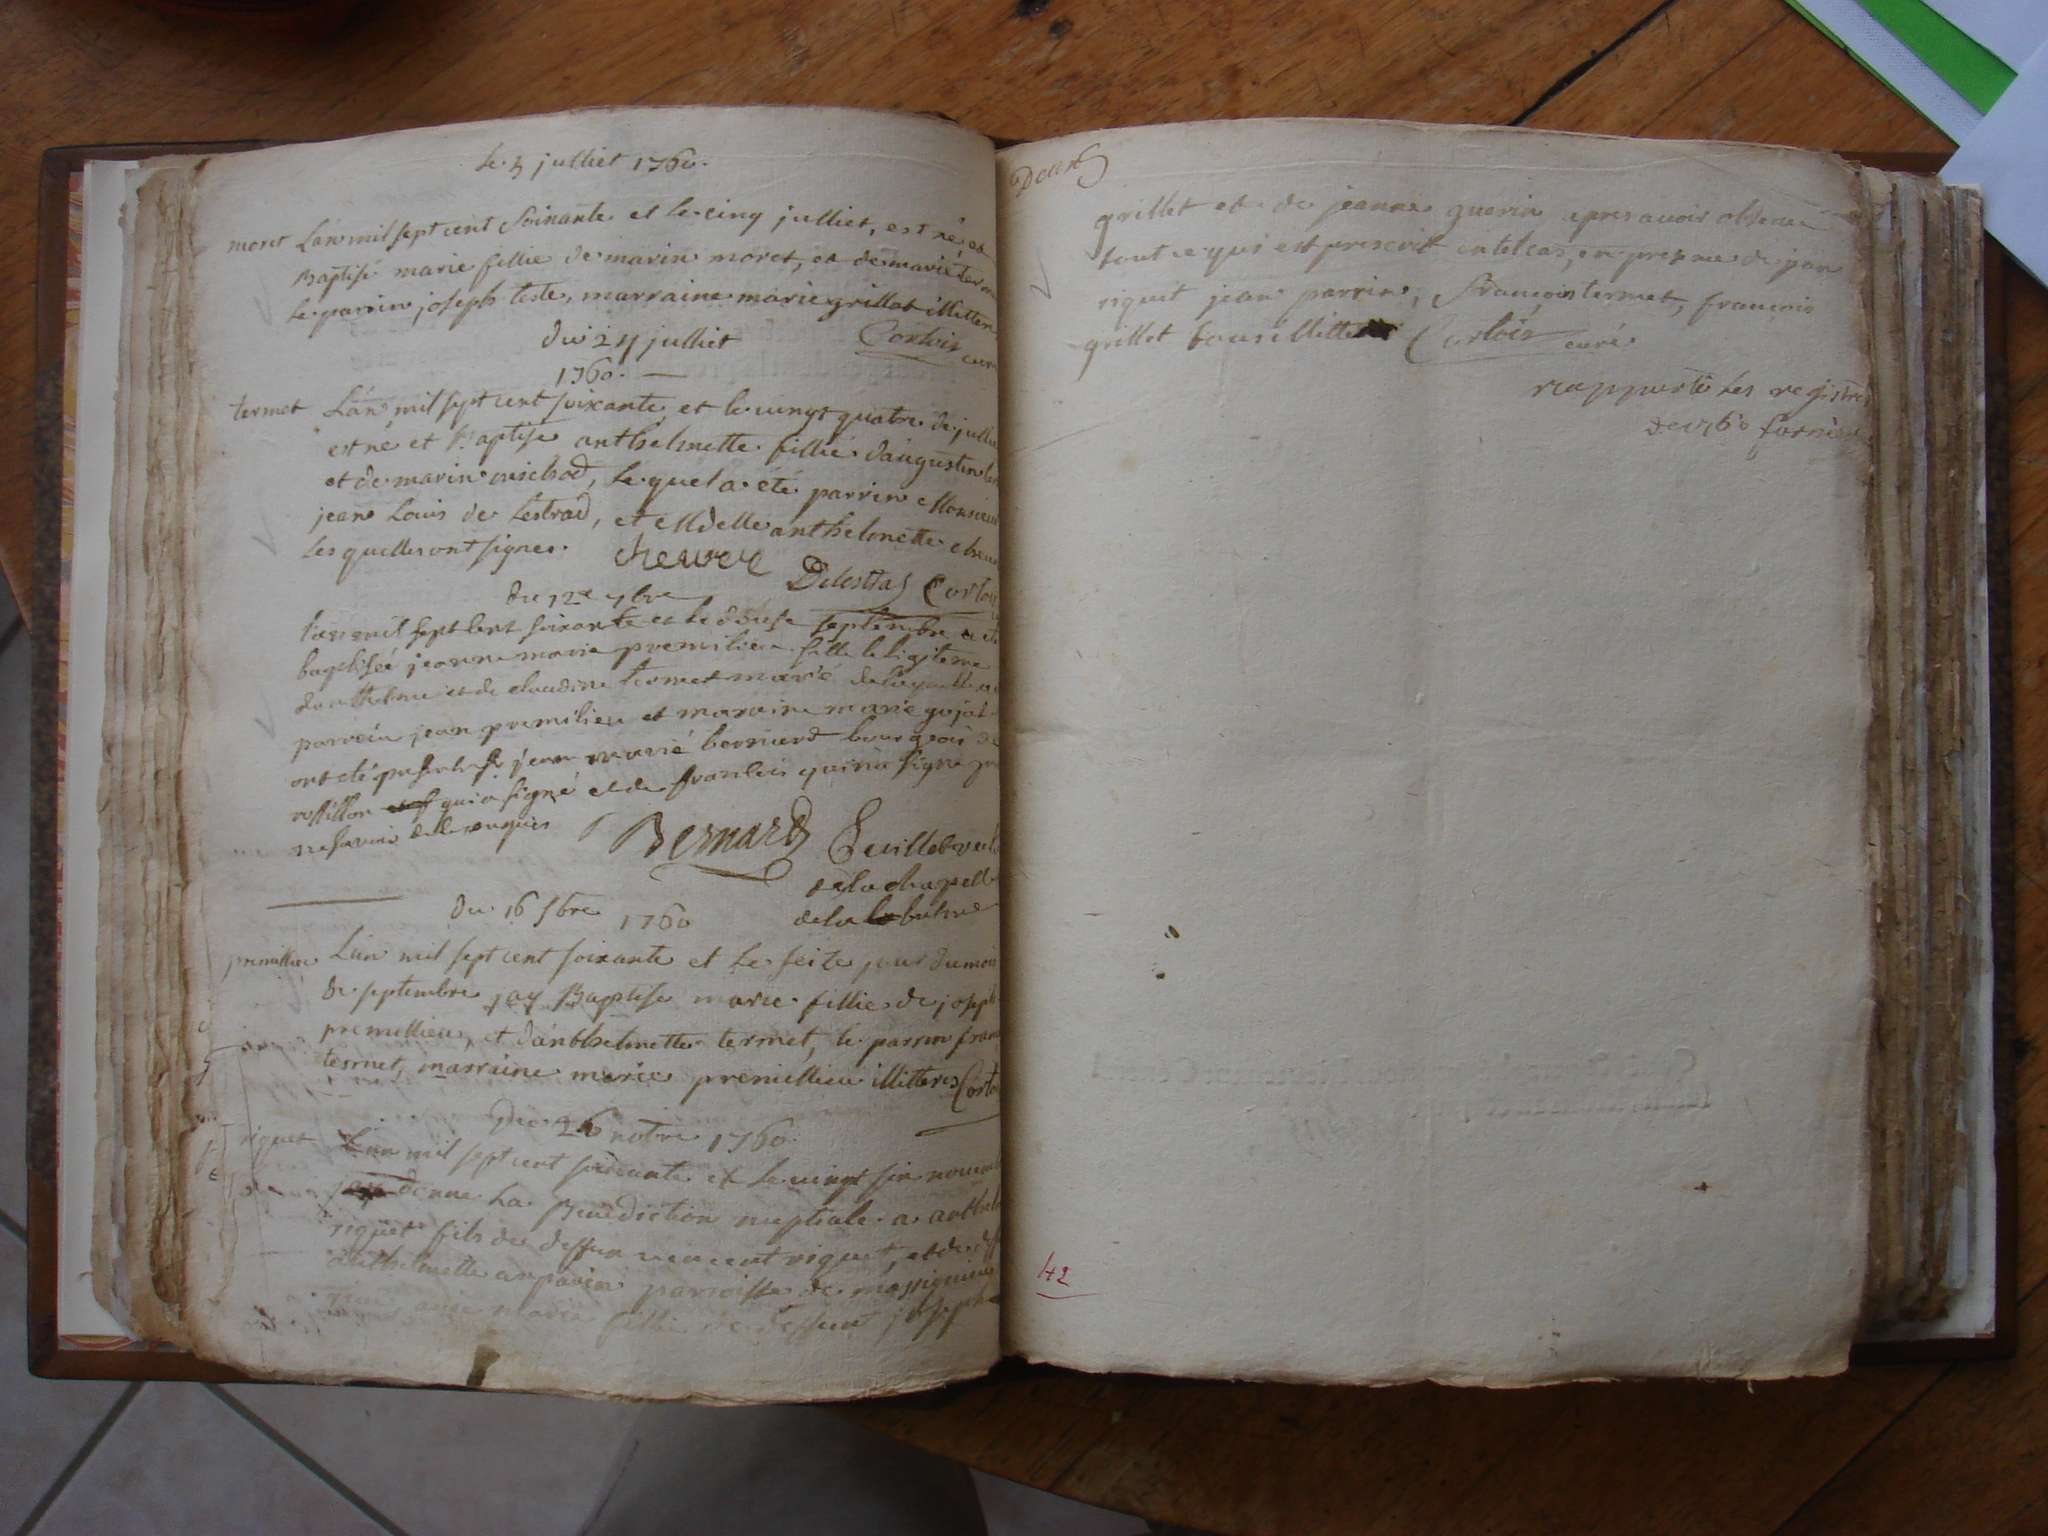 le 5 julliet 1760.
moret Lan mil sept cent soixante et le cinq julliet, est né, et
Baptisé marie fillie de marin moret, et de marie ter
le parrin joseph teste, marraine marie grillot illitter
Cortois curé
du 24 julliet
1760.
termet Lan mil sept cent soixante, et le vingt quatre de jullie
est né et Baptise anthelmette fillie daugustin ter
et de marin michod, le quel a été parrin Monsieur
jean Louis de Lestrad, et Mdelle anthelmette cheu
les quelles ont signes. cheuvre Delestras Cortois
du 12e 7bre
lan mil sept cent soixante et le douse septembre a ete
baptisée jeanne marie premilieu fille legiteme
danthelme et de claudine termet marié
parrein jean premilieu et maraine marie gojat
ont eté present jean marié bernierd bourgeois de
rossillon qui a signé et de francois qui n'a signé
ne savoir de ce enquis Bernard Cuillet
de la chapelle
de la balme
du 16 7bre 1760
premillieu Lan mil sept cent soixante et le seize jour du mois
de septembre jay Baptise marie fillie de joseph
premillieu, et danthelmette termet, le parrin fran
termet, marraine marie premillieu illitteres Cortois
Du 26 nobre 1760.
riquet Lan mil sept cent soixante et le vingt six novemb
donne La Benediction nuptiale a anthel
riquet fils de deffun vincent riquet, et de deff
anthelmette parroisse de massignieu
avec marie fillie de deffunt joseph
Deux
grillet et de jeanne guerin apres avoir observé
tout ce qui est prescrit en tel cas, en presence de jean
riquet jean parrin, francois termet, francois
grillet tous illitteres Cortois curé.
rapporté les registres
de 1760
42